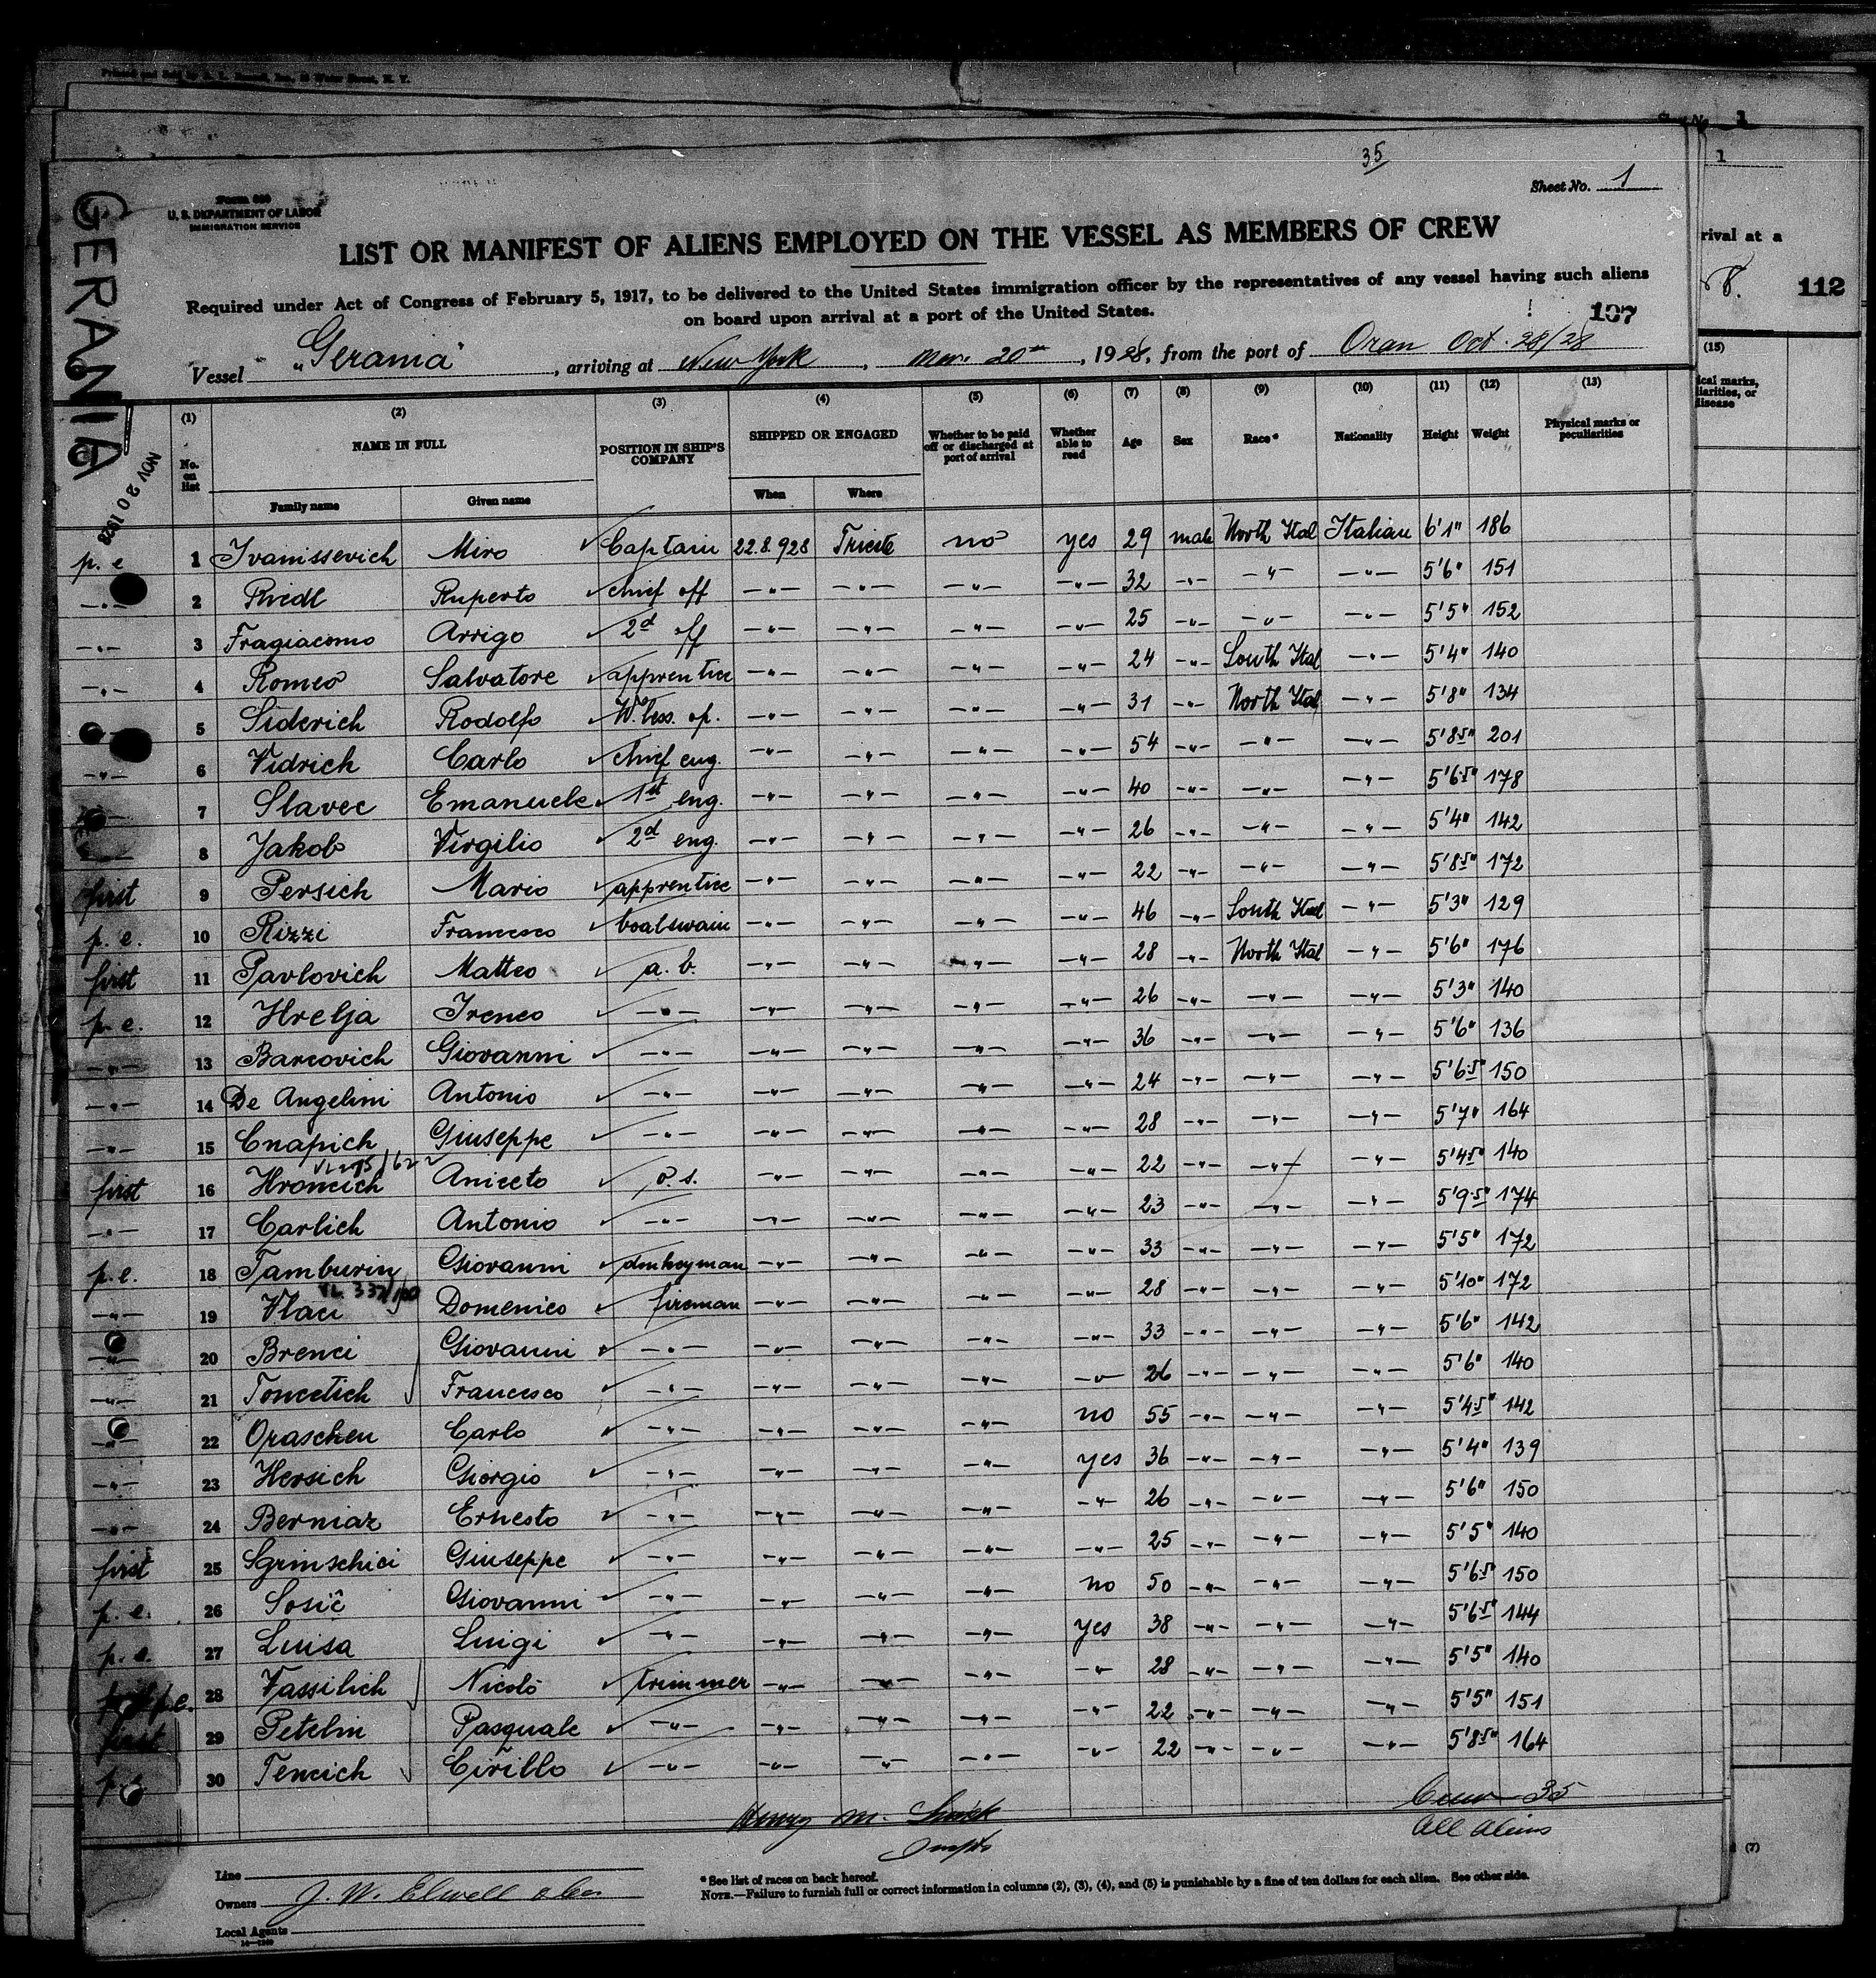 Sheet No. 1
1
35
Sheet No. 1
GERANIA
U. S. DEPARTMENT OF LABOR
IMMIGRATION SERVICE
LIST OR MANIFEST OF ALIENS EMPLOYED ON THE VESSEL AS MEMBERS OF CREW
Required under Act of Congress of February 5, 1917, to be delivered to the United States immigration officer by the representatives of any vessel having such aliens
on board upon arrival at a port of the United States.
rival at a
8. 112
107
Vessel "Gerania", arriving at New York, Nov. 20th, 1928, from the port of Oran Oct. 28/28
NOV 20 1928
(1) (2) (3) (4) (5) (6) (7) (8) (9) (10) (11) (12) (13) (15)
No. on list NAME IN FULL POSITION IN SHIP'S COMPANY SHIPPED OR ENGAGED Whether to be paid off or discharged at port of arrival Whether able to read Age Sex Race* Nationality Height Weight Physical marks or peculiarities
Family name Given name When Where
ical marks, liarities, or disease
p. e 1 Ivanissevich Miro ✓ Captain 22.8.928 Trieste no yes 29 male North Ital Italian 6'1" 186
—"— 2 Riedl Ruperto ✓ chief off —"— —"— —"— —"— 32 —"— —"— —"— 5'6" 151
—"— 3 Fragiacomo Arrigo ✓ 2d off —"— —"— —"— —"— 25 —"— —"— —"— 5'5" 152
—"— 4 Romeo Salvatore ✓ apprentice —"— —"— —"— —"— 24 —"— South Ital —"— 5'4" 140
—"— 5 Siderich Rodolfo ✓ W.less. op. —"— —"— —"— —"— 31 —"— North Ital —"— 5'8" 134
—"— 6 Vidrich Carlo ✓ chief eng. —"— —"— —"— —"— 54 —"— —"— —"— 5'8.5" 201
—"— 7 Slavec Emanuele ✓ 1st eng. —"— —"— —"— —"— 40 —"— —"— —"— 5'6.5" 178
—"— 8 Jakob Virgilio ✓ 2d eng. —"— —"— —"— —"— 26 —"— —"— —"— 5'4" 142
first 9 Persich Mario ✓ apprentice —"— —"— —"— —"— 22 —"— —"— —"— 5'8.5" 172
p. e. 10 Rizzi Francesco ✓ boatswain —"— —"— —"— —"— 46 —"— South Ital —"— 5'3" 129
first 11 Pavlovich Matteo ✓ a. b. —"— —"— —"— —"— 28 —"— North Ital —"— 5'6" 176
p. e. 12 Hrelja Ireneo ✓ —"— —"— —"— —"— —"— 26 —"— —"— —"— 5'3" 140
—"— 13 Barcovich Giovanni ✓ —"— —"— —"— —"— —"— 36 —"— —"— —"— 5'6" 136
—"— 14 De Angelini Antonio ✓ —"— —"— —"— —"— —"— 24 —"— —"— —"— 5'6.5" 150
—"— 15 Cnapich Giuseppe ✓ —"— —"— —"— —"— —"— 28 —"— —"— —"— 5'7" 164
first 16 Hroncich Aniceto ✓ o. s. —"— —"— —"— —"— 22 —"— —"— —"— 5'4.5" 140
—"— 17 Carlich Antonio ✓ —"— —"— —"— —"— —"— 23 —"— —"— —"— 5'9.5" 174
p. e. 18 Tamburin Giovanni ✓ donkeyman —"— —"— —"— —"— 33 —"— —"— —"— 5'5" 172
—"— 19 Vlaci Domenico ✓ fireman —"— —"— —"— —"— 28 —"— —"— —"— 5'10" 172
—"— 20 Brenci Giovanni ✓ —"— —"— —"— —"— —"— 33 —"— —"— —"— 5'6" 142
—"— 21 Toncetich Francesco ✓ —"— —"— —"— —"— —"— 26 —"— —"— —"— 5'6" 140
—"— 22 Oraschen Carlo ✓ —"— —"— —"— —"— no 55 —"— —"— —"— 5'4.5" 142
—"— 23 Hersich Giorgio ✓ —"— —"— —"— —"— yes 36 —"— —"— —"— 5'4" 139
—"— 24 Berniaz Ernesto ✓ —"— —"— —"— —"— —"— 26 —"— —"— —"— 5'6" 150
first 25 Sgrinschici Giuseppe ✓ —"— —"— —"— —"— —"— 25 —"— —"— —"— 5'5" 140
p. e. 26 Sosič Giovanni ✓ —"— —"— —"— —"— no 50 —"— —"— —"— 5'6.5" 150
p. e. 27 Luisa Luigi ✓ —"— —"— —"— —"— yes 38 —"— —"— —"— 5'6.5" 144
p.e. 28 Vassilich Nicolò ✓ trimmer —"— —"— —"— —"— 28 —"— —"— —"— 5'5" 140
first 29 Petelin Pasquale ✓ —"— —"— —"— —"— —"— 22 —"— —"— —"— 5'5" 151
p. e 30 Tencich Cirillo ✓ —"— —"— —"— —"— —"— 22 —"— —"— —"— 5'8.5" 164
Henry M.
Crew 35
All Aliens
Line
Owners J. W. Elwell & Co.
Local Agents
* See list of races on back hereof.
NOTE.—Failure to furnish full or correct information in columns (2), (3), (4), and (5) is punishable by a fine of ten dollars for each alien. See other side.
(7)